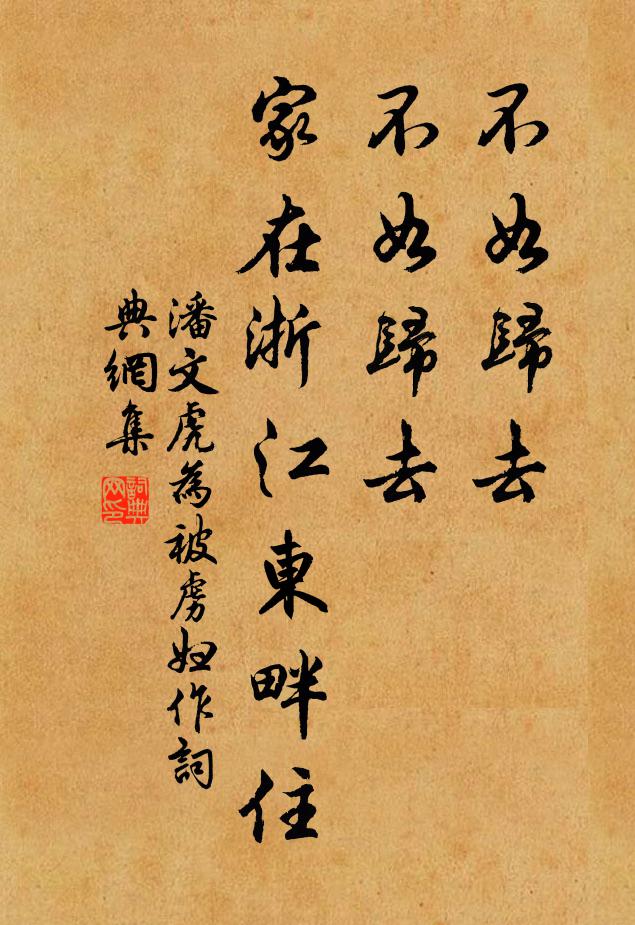 不如歸去
不如歸去
家在浙江東畔住
潘文虎為被虜婦作詞
典網集
詞典
网印